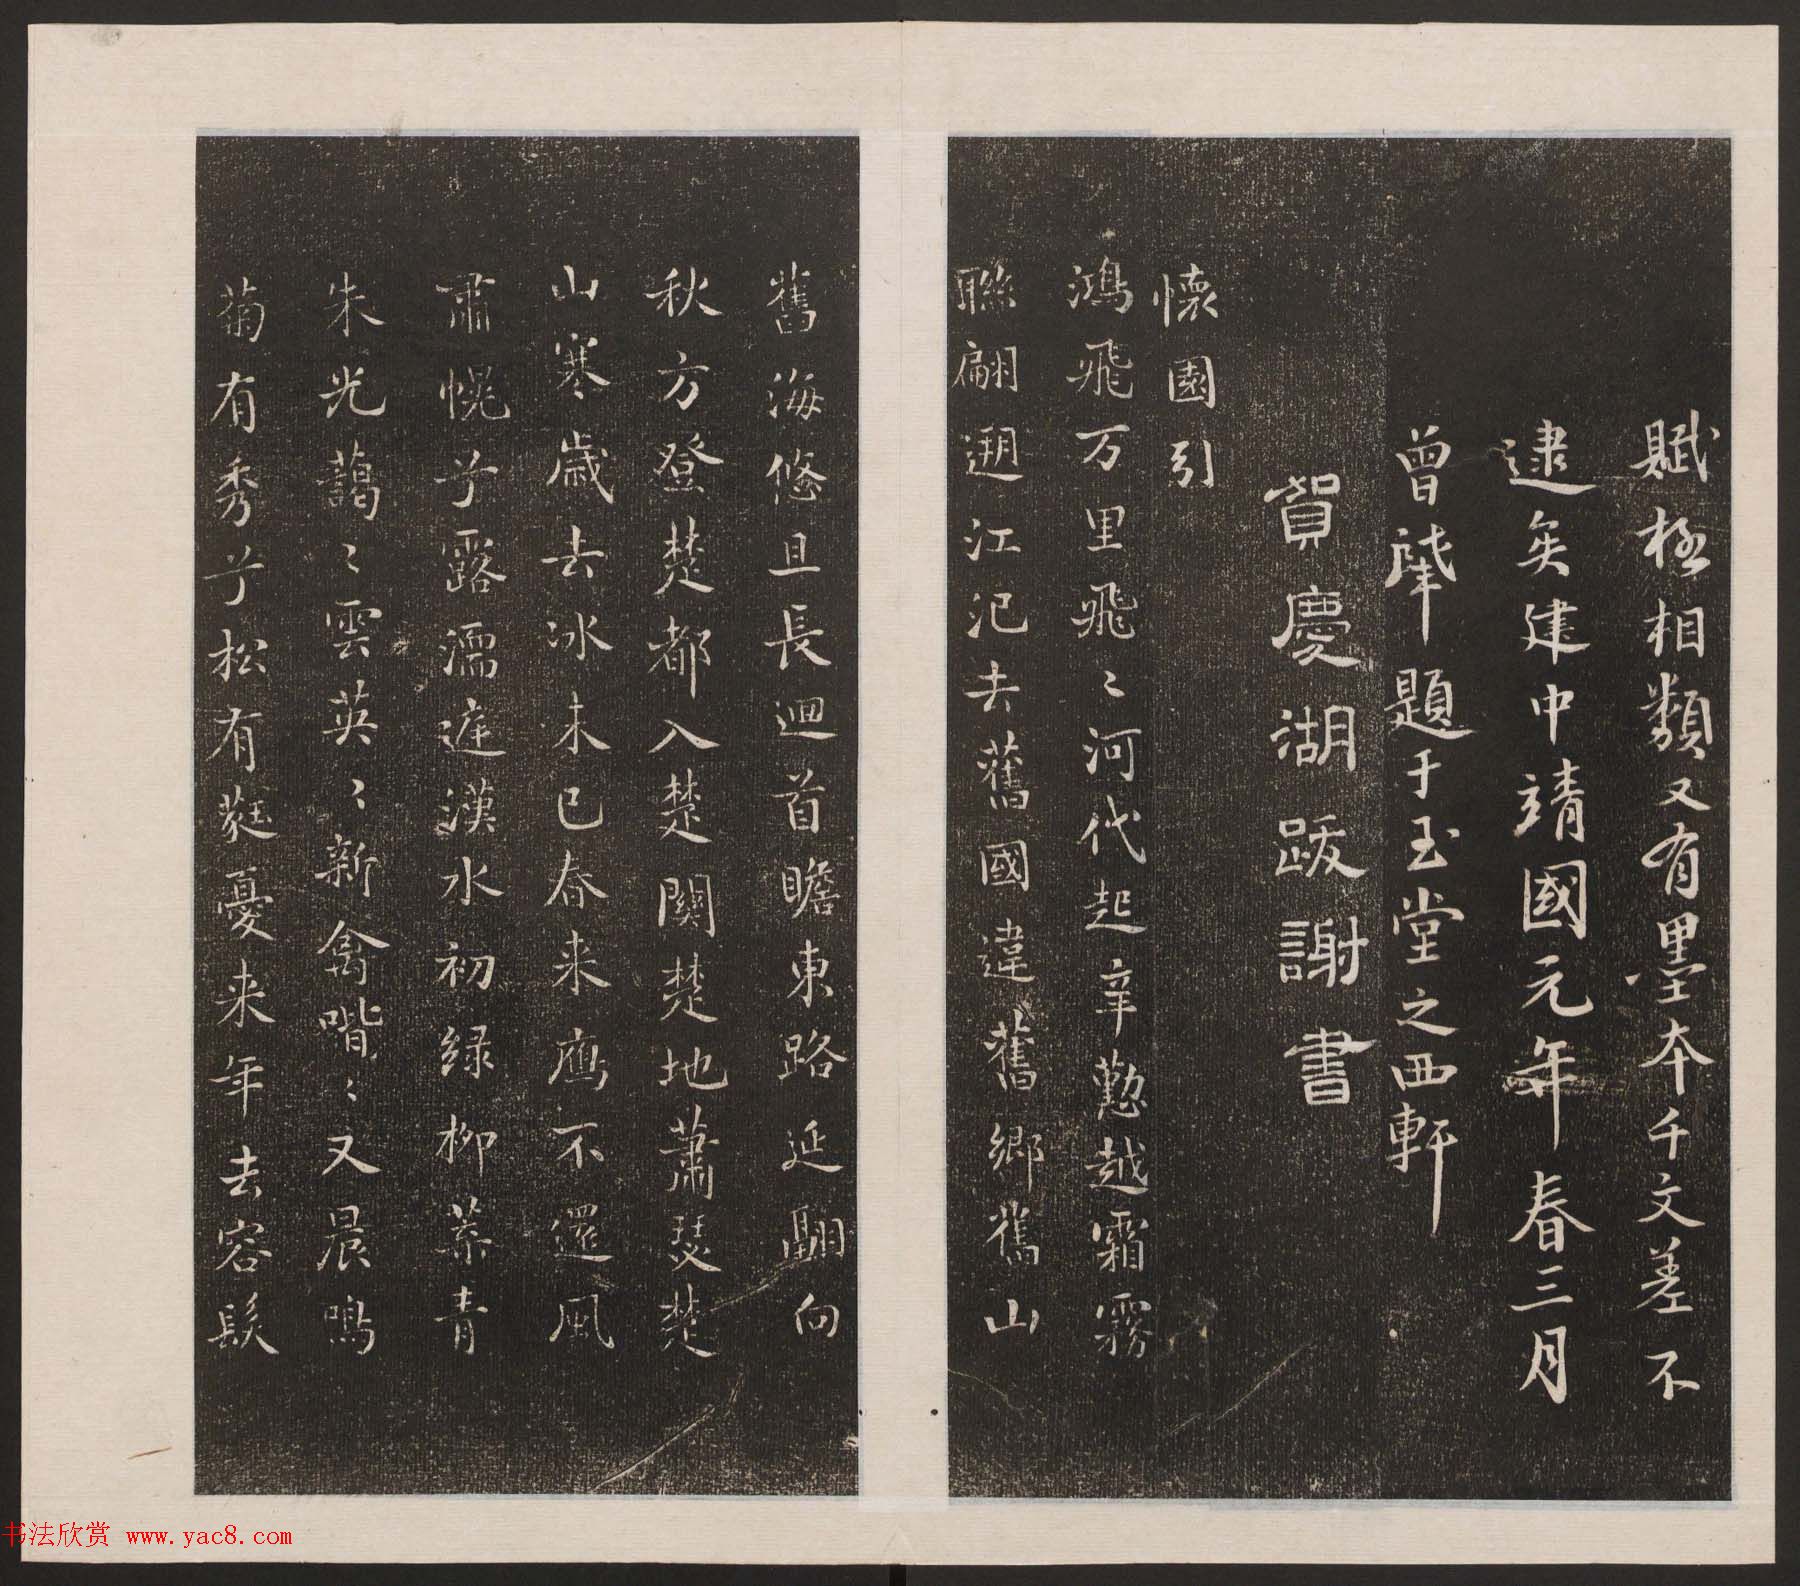 賦極相類又有墨本千文差不
逮矣建中靖國元年春三月
曾肇題于玉堂之西軒
賀慶湖跋謝書
懷園引
鴻飛万里飛〻河代起辛勤越霜霧
聯翩遡江汜去舊國違舊鄉舊山
舊海悠且長迴首瞻東路延翮向
秋方登楚都入楚關楚地蕭瑟楚
山寒歲去冰未已春来鴈不還風
肅幌兮露濡庭漢水初綠柳葉青
朱光藹〻雲英〻新禽喈〻又晨鳴
菊有秀兮松有蕤憂来年去容髮
书法欣赏 www.yac8.com